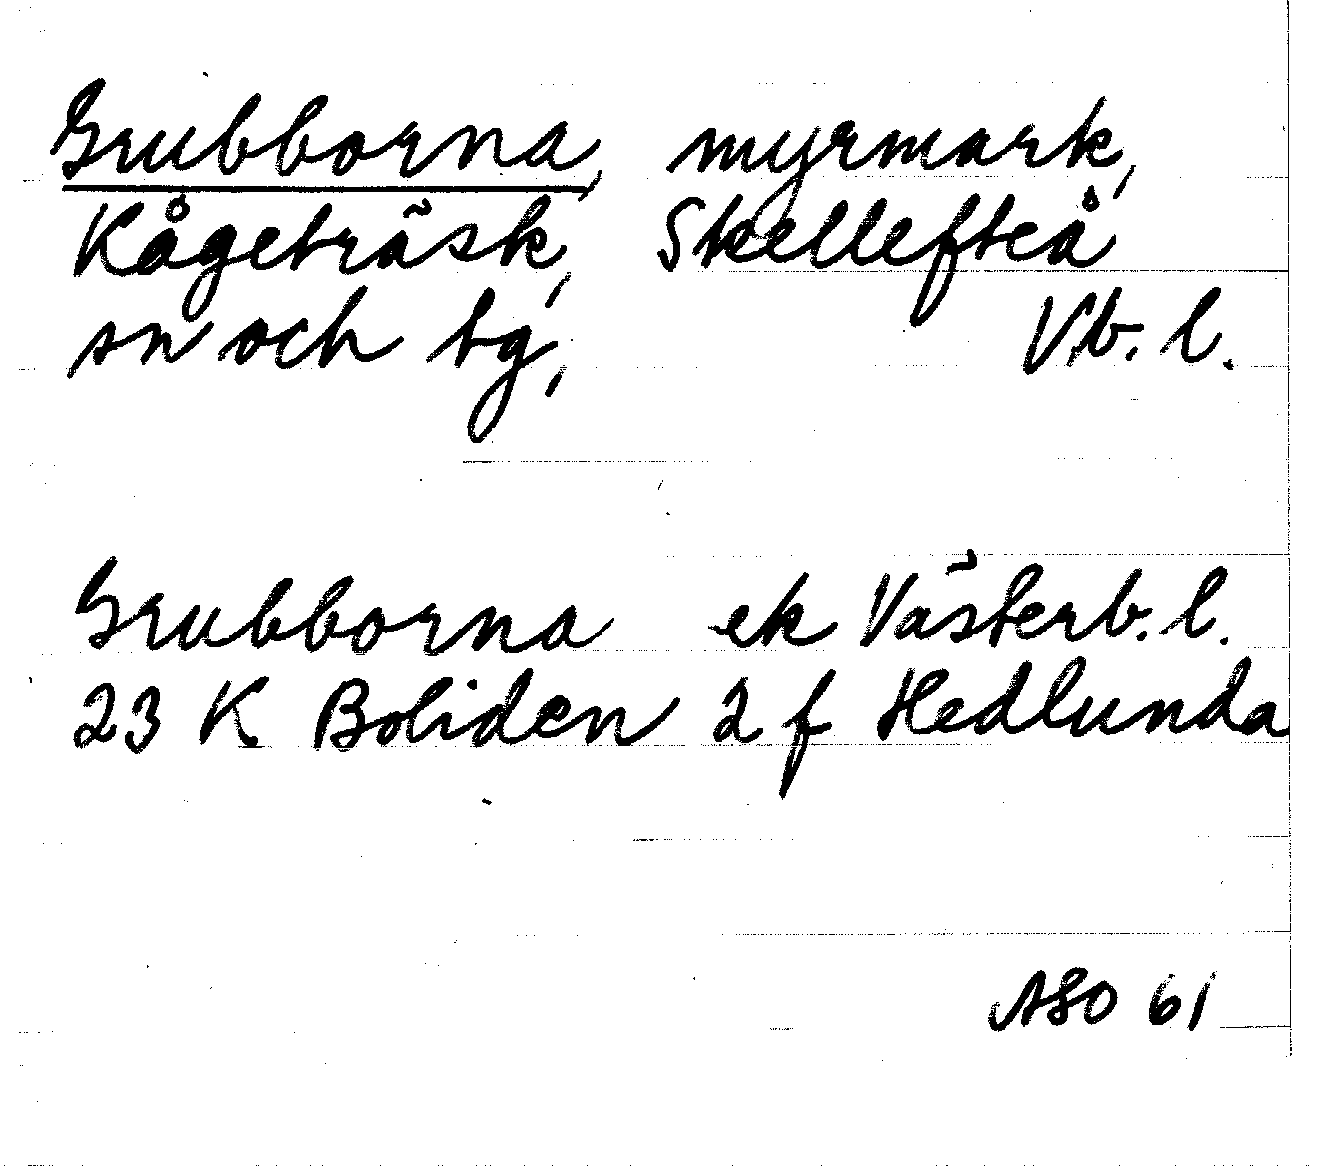 Grubborna, myrmark,
Kågeträsk, Skellefteå
sn och tg, Vb. l.
Grubborna ek Västerb. l.
23 K Boliden 2 f Hedlunda
ASO 61